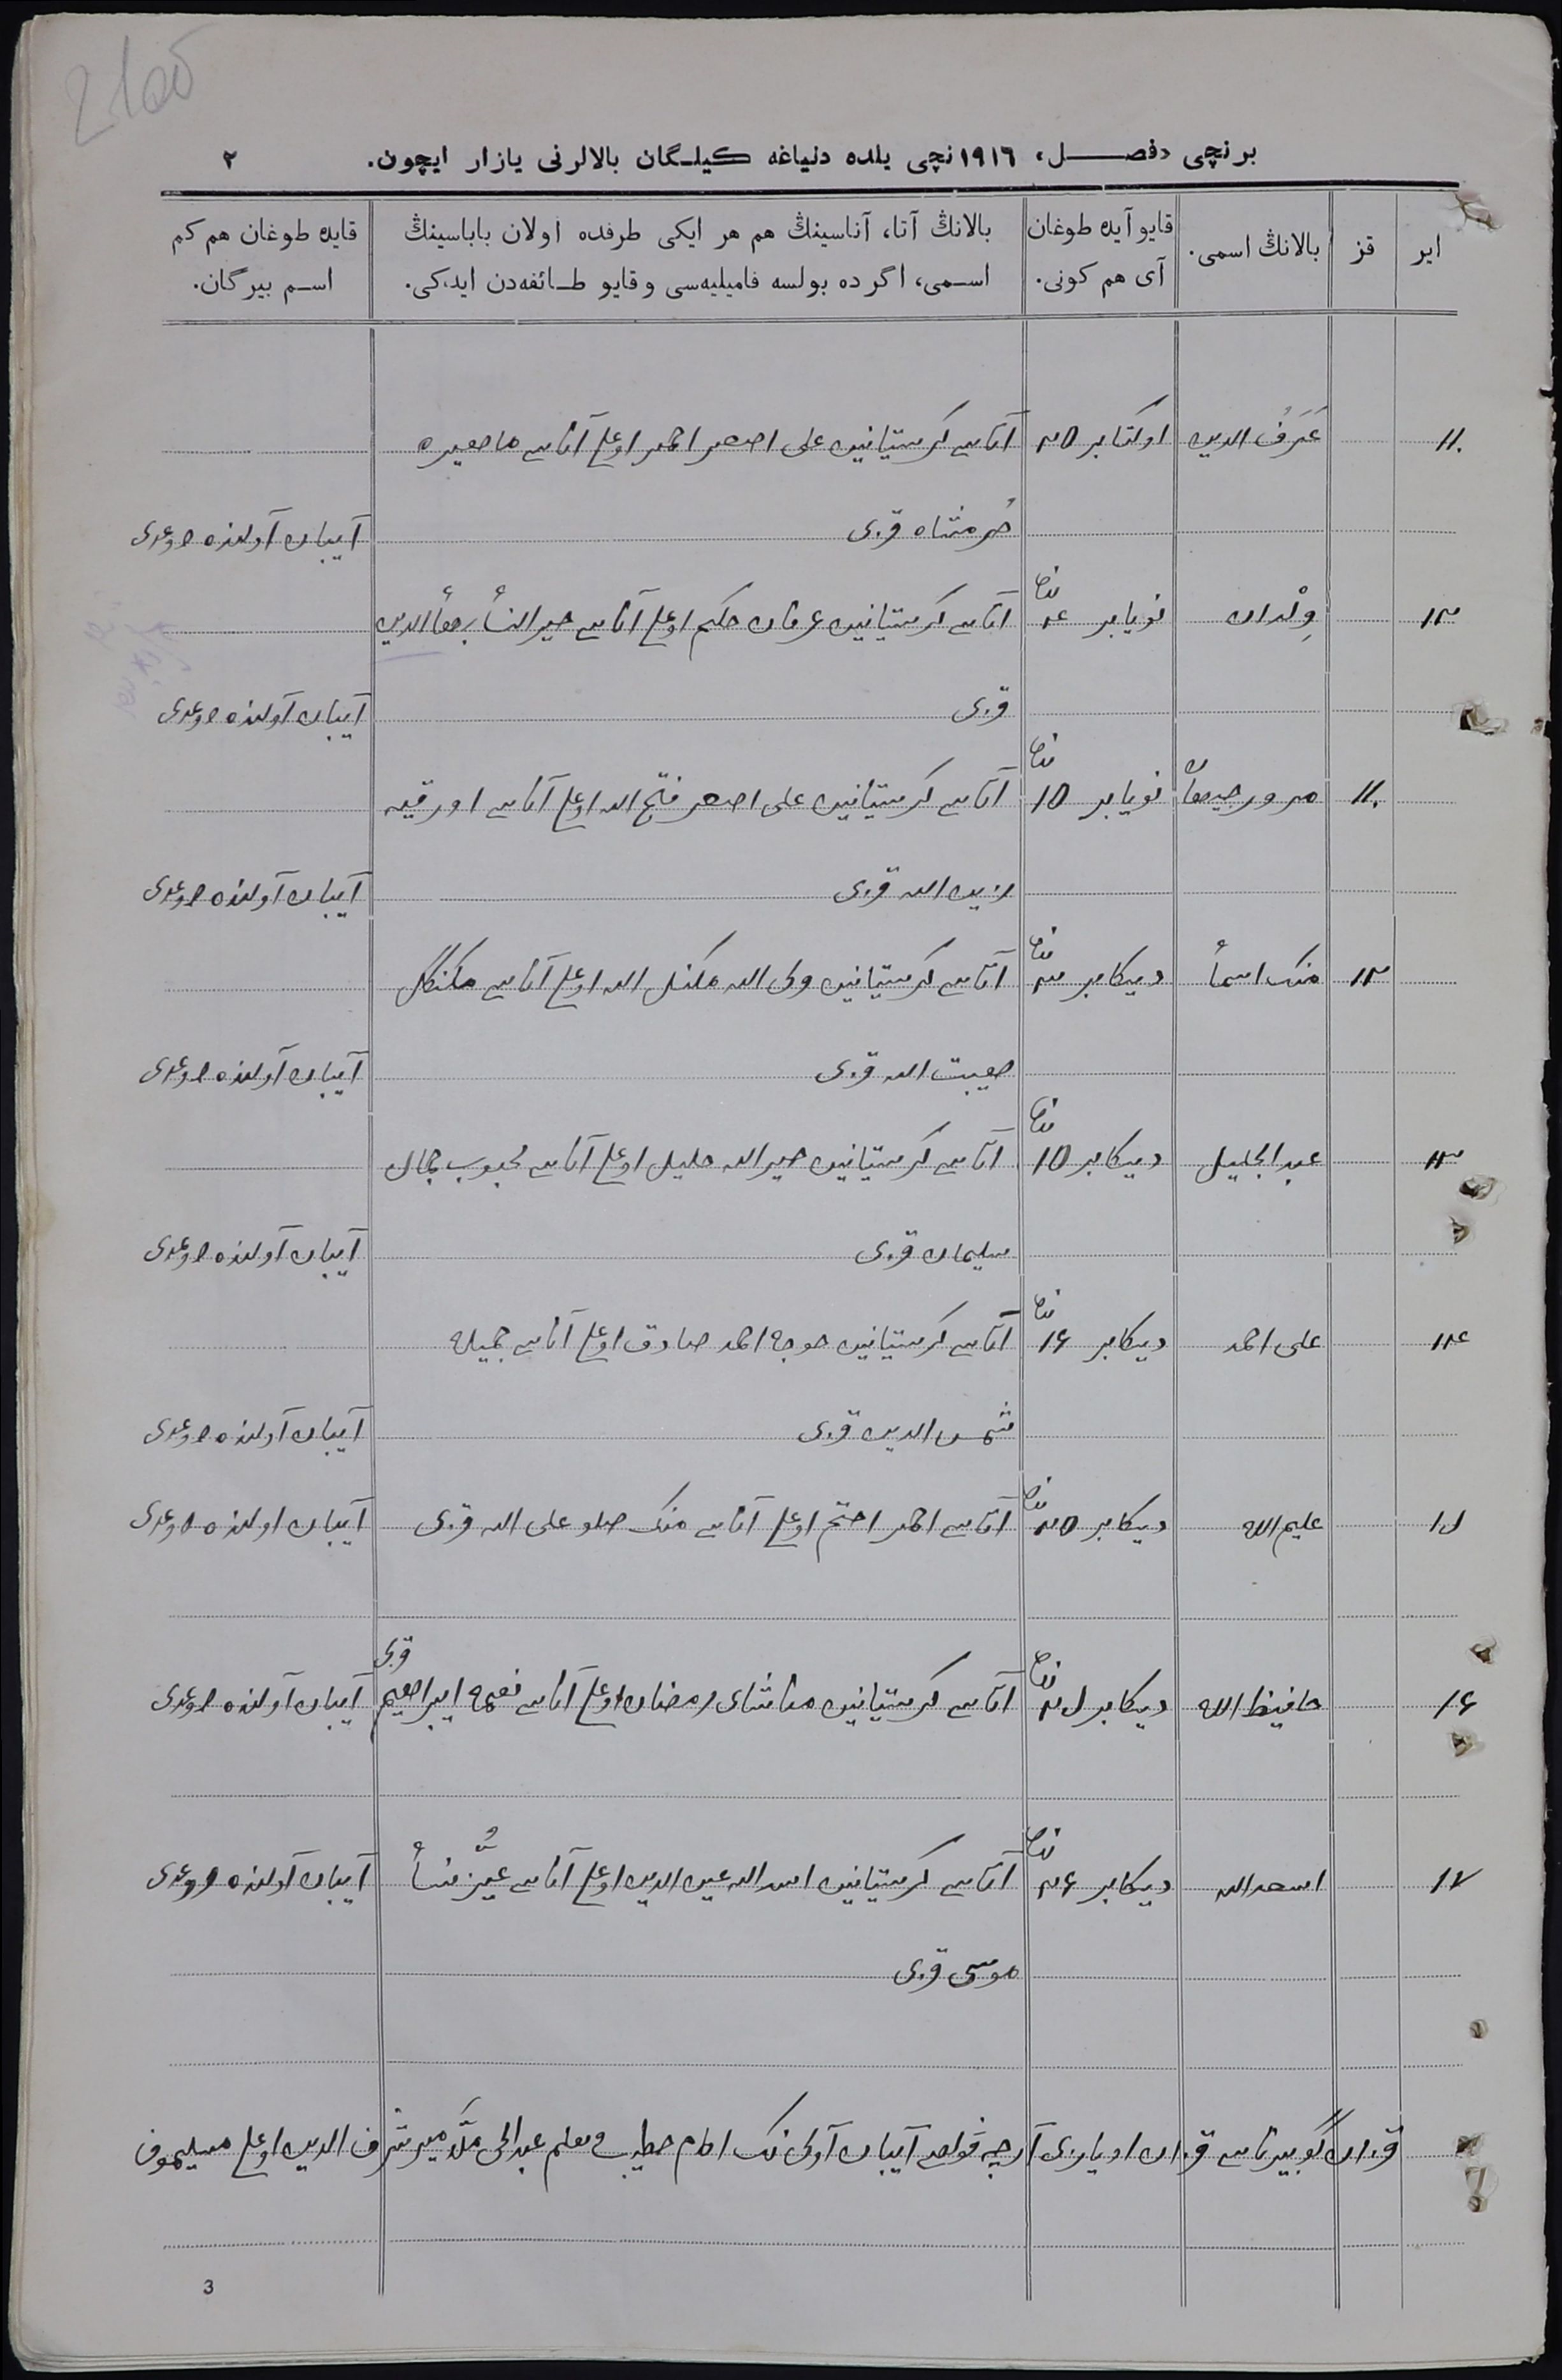 2100
برنچی «فصل» ١٩١٦نچی یلده دنیاغه کیلـگان بالالرنی یازار ایچون. ٢
ایر قز بالانڭ اسمی. قایو آیده طوغان آی هم کونی. بالانڭ آتا، آناسینڭ هم هر ایکی طرفده اولان باباسینڭ اسـمی، اگر ده بولسه فامیلیه‌سی و قایو طـائفه‌دن ایدکی. قایده طوغان هم کم اسـم بیرگان.
١١. شَرَفُ الدین اوکتابر ٢٥ آتاسی کرستیانین علی اصغر احمد اوغلی آناسی ماصغیره
خُرمشاه قزی آیبان آولنده طوغدی
١٢ وِلْدان نویابر ٤ نجی آتاسی کرستیانین عرفان حکیم اوغلی آناسی خیرالنسأ بهأالدین
قزی آیبان آولنده طوغدی
١١. سرور جیهان نویابر ١٥ نجی آتاسی کرستیانین علی اصغر فتح الله اوغلی آناسی
زین الله قزی آیبان آولنده طوغدی
١٢ منک اسمأ دیکابر ٣ نجی آتاسی کرستیانین ولی الله اوغلی آناسی
حبیب الله قزی آیبان آولنده طوغدی
١٣ عبد الجلیل دیکابر ١٥ نجی آتاسی کرستیانین خیرالله خلیل اوغلی آناسی محبوب جمال
سلیمان قزی آیبان آولنده طوغدی
١٤ علی احمد دیکابر ١٦ نجی آتاسی کرستیانین خوجه احمد صادق اوغلی آناسی جمیله
شمس الدین قزی آیبان آولنده طوغدی
١٥ علیم الله دیکابر ٢٥ نجی آتاسی احمد اوغلی آناسی منک صلو علی الله قزی آیبان آولنده طوغدی
١٦ حافیظ الله دیکابر ٢٥ نجی آتاسی کرستیانین رمضان اوغلی آناسی نعیمه ابراهیم قزی آیبان آولنده طوغدی
١٧ اسعد الله دیکابر ٢٦ نجی آتاسی کرستیانین اسد الله عین الدین اوغلی آناسی آیبان آولنده طوغدی
موسی قزی
قزان گوبیرناسی قزان اویازی آرچه آیبان آولی نک امام خطیب و معلم عبد الحی شرف الدین اوغلی مسلیموف
3